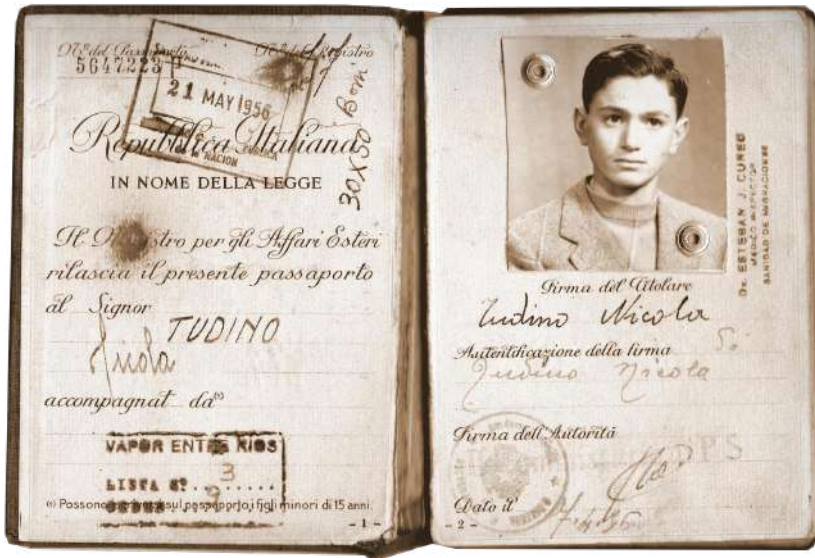 N.º del Passaporto N.º del Registro
5647223
21 MAY 1956
NACION
30X30 Bom
Repubblica Italiana
IN NOME DELLA LEGGE
Il Ministro per gli Affari Esteri
rilascia il presente passaporto
al Signor
TUDINO
Nicola
accompagnat da
VAPOR ENTRE RIOS
LISTA Nº 3
(1) Possono sul passaporto i figli minori di 15 anni.
- 1 -
Dr. ESTEBAN J. CUNEO
MEDICO INSPECTOR
SANIDAD DE MIGRACIONES
Firma del Titolare
Tudino Nicola
Autentificazione della firma Di
Tudino Nicola
Firma dell'Autorità
Dato il
- 2 -